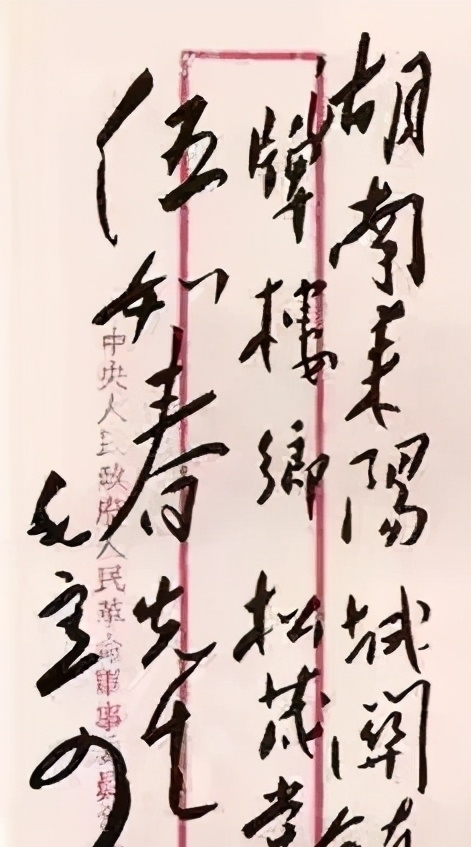 湖南耒陽城關
牌樓鄉松茂堂
伍知春先生
中央人民政府人民革命軍事委員
毛